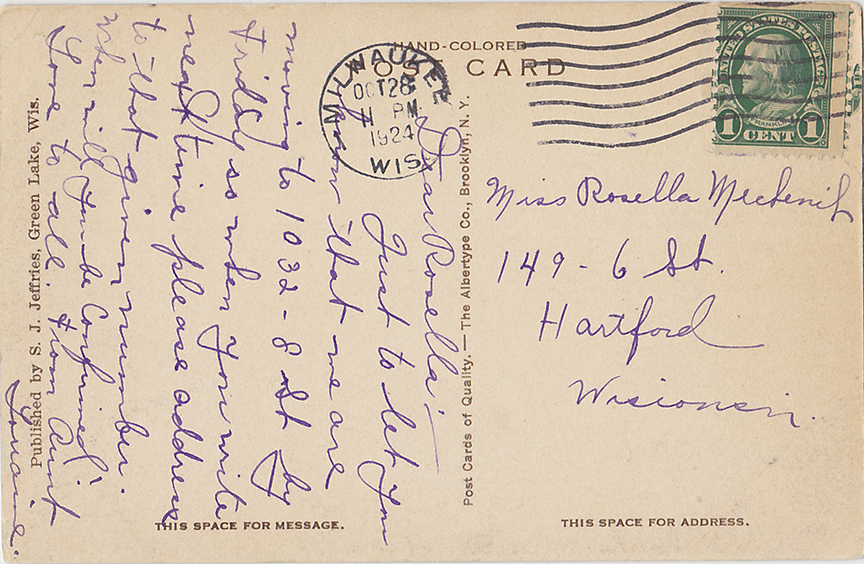 HAND-COLORED
POST CARD
MILWAUKEE
OCT 28
11 PM
1924
WIS.
UNITED STATES POSTAGE
FRANKLIN
1 CENT 1
Dear Rosella:—
Just to let you
know that we are
moving to 1032 - 8 St by
Friday so when you write
next time please address
to that given number.
When will you be Confirmed?
Love to all. From Aunt
Louise.
Published by S. J. Jeffries, Green Lake, Wis.
Post Cards of Quality. — The Albertype Co., Brooklyn, N. Y.
Miss Rosella
149 - 6 St.
Hartford
Wisconsin.
THIS SPACE FOR MESSAGE.
THIS SPACE FOR ADDRESS.